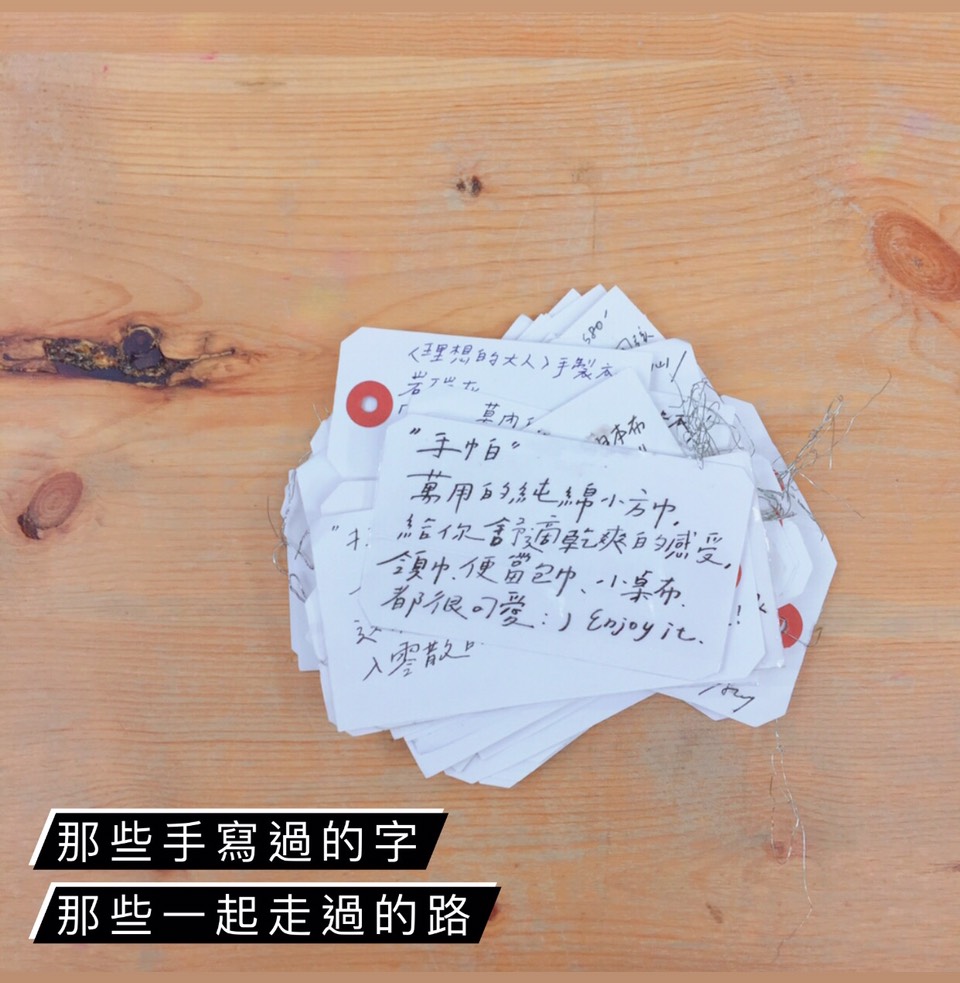 580'
〈理想的大人〉手製衣
日本布
"手帕"
萬用的純綿小方巾,
給你舒適乾爽的感受,
領巾、便當包巾、小桌布.
都很可愛:) Enjoy it.
入零散
那些手寫過的字
那些一起走過的路